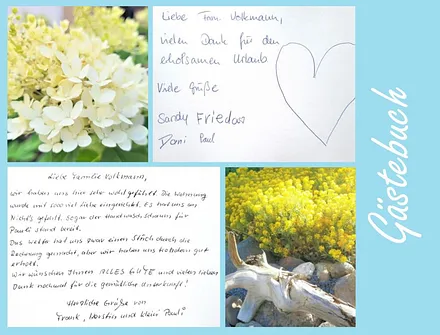 Liebe Fam. Volkmann,
vielen Dank für den
erholsamen Urlaub
Viele Grüße
Sandy Friedow
Domi Paul
Liebe Familie Volkmann,
wir haben uns hier sehr wohl gefühlt. Die Wohnung
wurde mit so viel Liebe eingerichtet. Es hat uns an
Nichts gefehlt. Sogar der Handwaschschaum für
Pauli stand bereit.
Das Wetter hat uns zwar einen Strich durch die
Rechnung gemacht, aber wir haben uns trotzdem gut
erholt.
Wir wünschen Ihnen ALLES GUTE und vielen lieben
Dank nochmal für die gemütliche Unterkunft!
Herzliche Grüße von
Frank, Kerstin und klein Pauli
Gästebuch